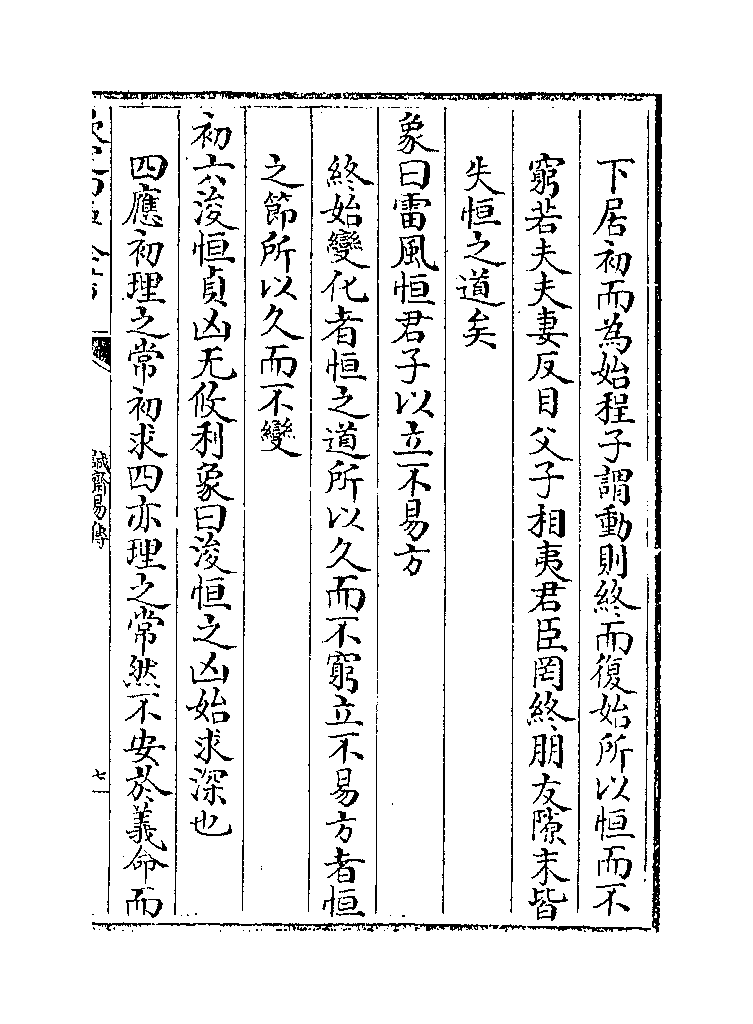 下居初而為始程子謂動則終而復始所以恒而不
窮若夫夫妻反目父子相夷君臣罔終朋友隙末皆
失恒之道矣
象曰雷風恒君子以立不易方
終始變化者恒之道所以久而不窮立不易方者恒
之節所以久而不變
初六浚恒貞凶无攸利象曰浚恒之凶始求深也
四應初理之常初求四亦理之常然不安於義命而
誠齋易傳
七